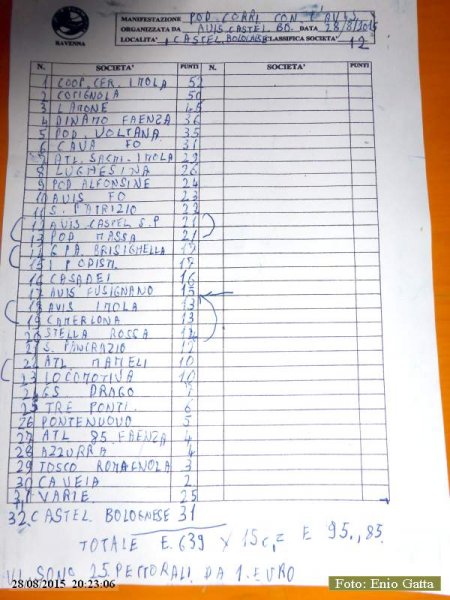 MANIFESTAZIONE POD. CORRI CON L'AVIS
ORGANIZZATA DA AVIS CASTEL BO. DATA 28/8/2015
LOCALITA' CASTEL BOLOGNESE CLASSIFICA SOCIETA' 12
RAVENNA
N. SOCIETA' PUNTI N. SOCIETA' PUNTI
1 COOP. CER. IMOLA 52
2 COTIGNOLA 50
3 LAMONE 45
4 DINAMO FAENZA 36
5 POD. VOLTANA 35
6 CAVA FO 31
7 ATL. SACMI-IMOLA 29
8 LUGHESINA 26
9 POD ALFONSINE 24
10 AVIS FO 23
11 S. PATRIZIO 22
12 AVIS CASTEL S.P 21
13 POD. MASSA 21
14 G.PA. BRISIGHELLA 19
15 I PODISTI 19
16 CASADEI 16
17 AVIS FUSIGNANO 15
18 AVIS IMOLA 13
19 CAMERLONA 13
20 STELLA ROSSA 14
21 S. PANCRAZIO 12
22 ATL. MAMELI 10
23 LOCOMOTIVA 10
24 GS DRAGO 7
25 TRE PONTI. 6
26 PONTENUOVO 5
27 ATL 85 FAENZA 4
28 AZZURRA 4
29 TOSCO ROMAGNOLA 3
30 CAVEIA 2
31 VARIE. 25
32 CASTEL BOLOGNESE 31
TOTALE E. 639 X 15 c. = E 95,85
VI SONO 25 PETTORALI DA 1. EURO
28/08/2015 20:23:06
Foto: Enio Gatta